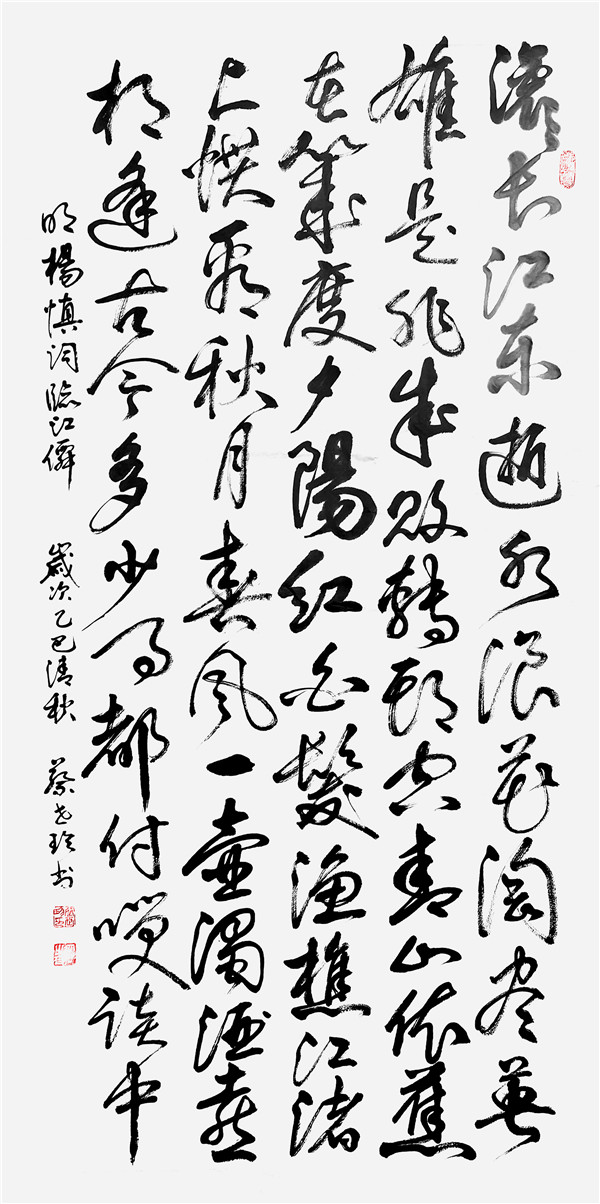 滚滚长江东逝水浪花淘尽英
雄是非成败轉头空青山依舊
在幾度夕陽红白髮渔樵江渚
上惯看秋月春风一壺濁酒喜
相逢古今多少事都付笑谈中
明楊慎词臨江僊 歲次乙巳清秋 蔡 珍书